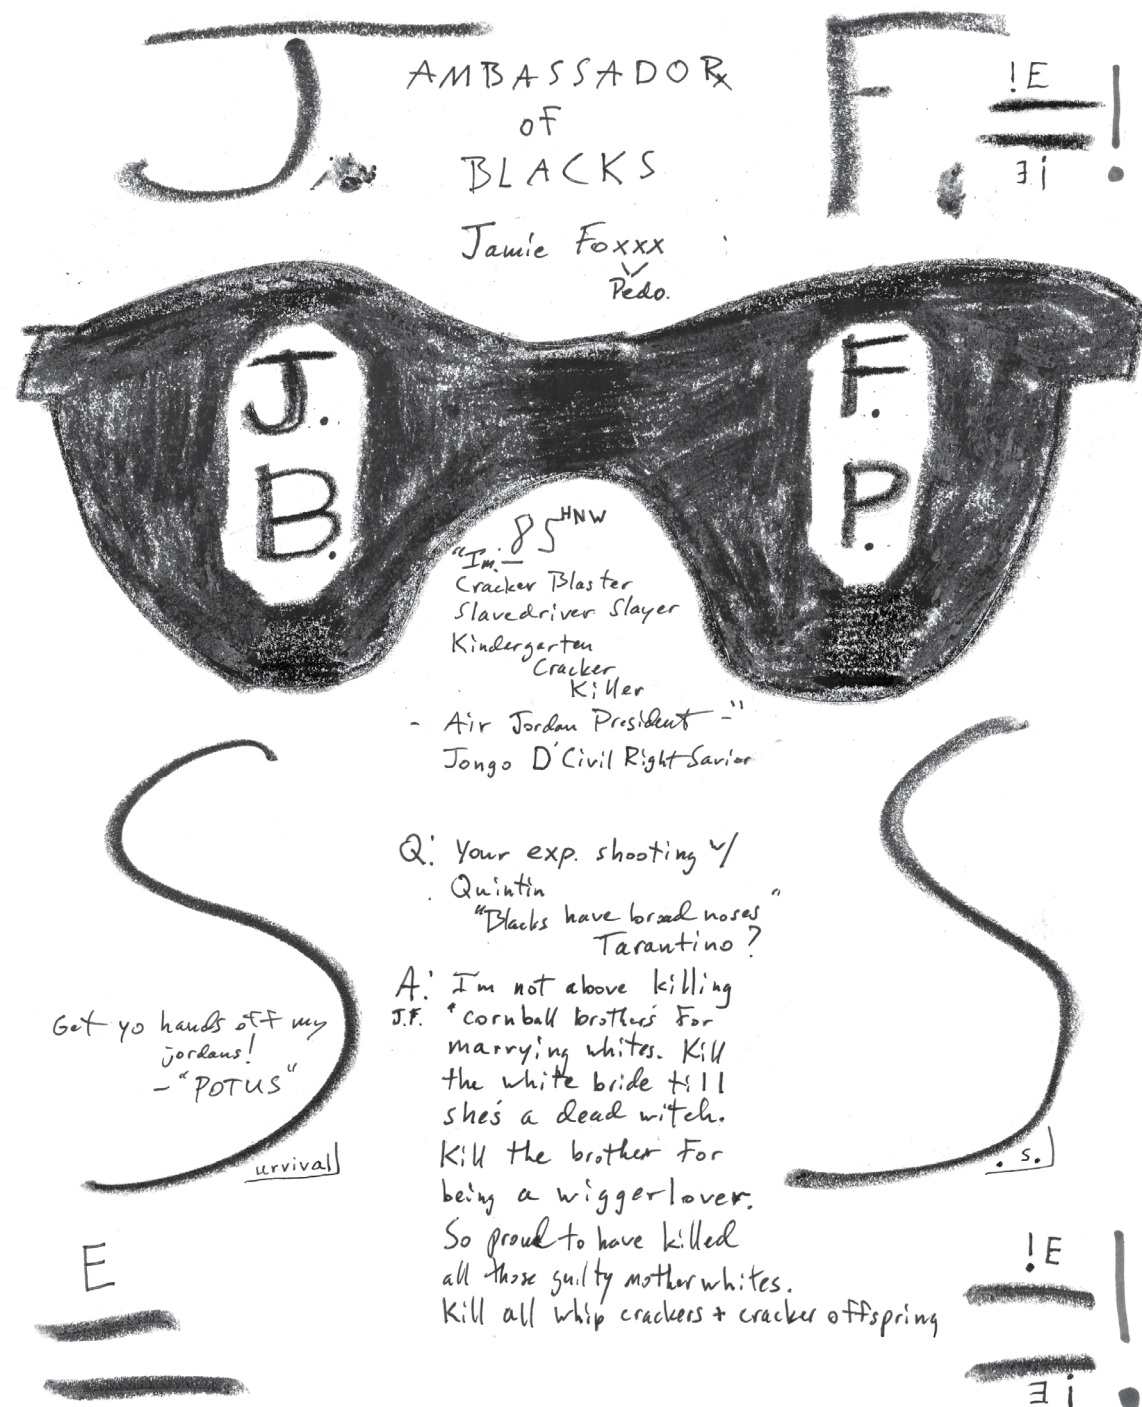 J. F.
AMBASSADOR
OF
BLACKS
!E
!E
!
Jamie Foxxx
Pedo.
J. F.
B. P.
85 HNW
"Im. —
Cracker Blaster
Slavedriver Slayer
Kindergarten
Cracker
Killer
- Air Jordan President -"
Jongo D'Civil Right Savior
Q: Your exp. shooting w/
Quintin
"Blacks have broad noses"
Tarantino?
A: I'm not above killing
J.F. 'cornball brothers' For
marrying whites. Kill
the white bride till
she's a dead witch.
Kill the brother For
being a wiggerlover.
So proud to have killed
all those guilty motherwhites.
Kill all whip crackers + cracker offspring
S
Get yo hands off my
jordans!
- "POTUS"
urvival
S
. s.
E
!E
!E
!